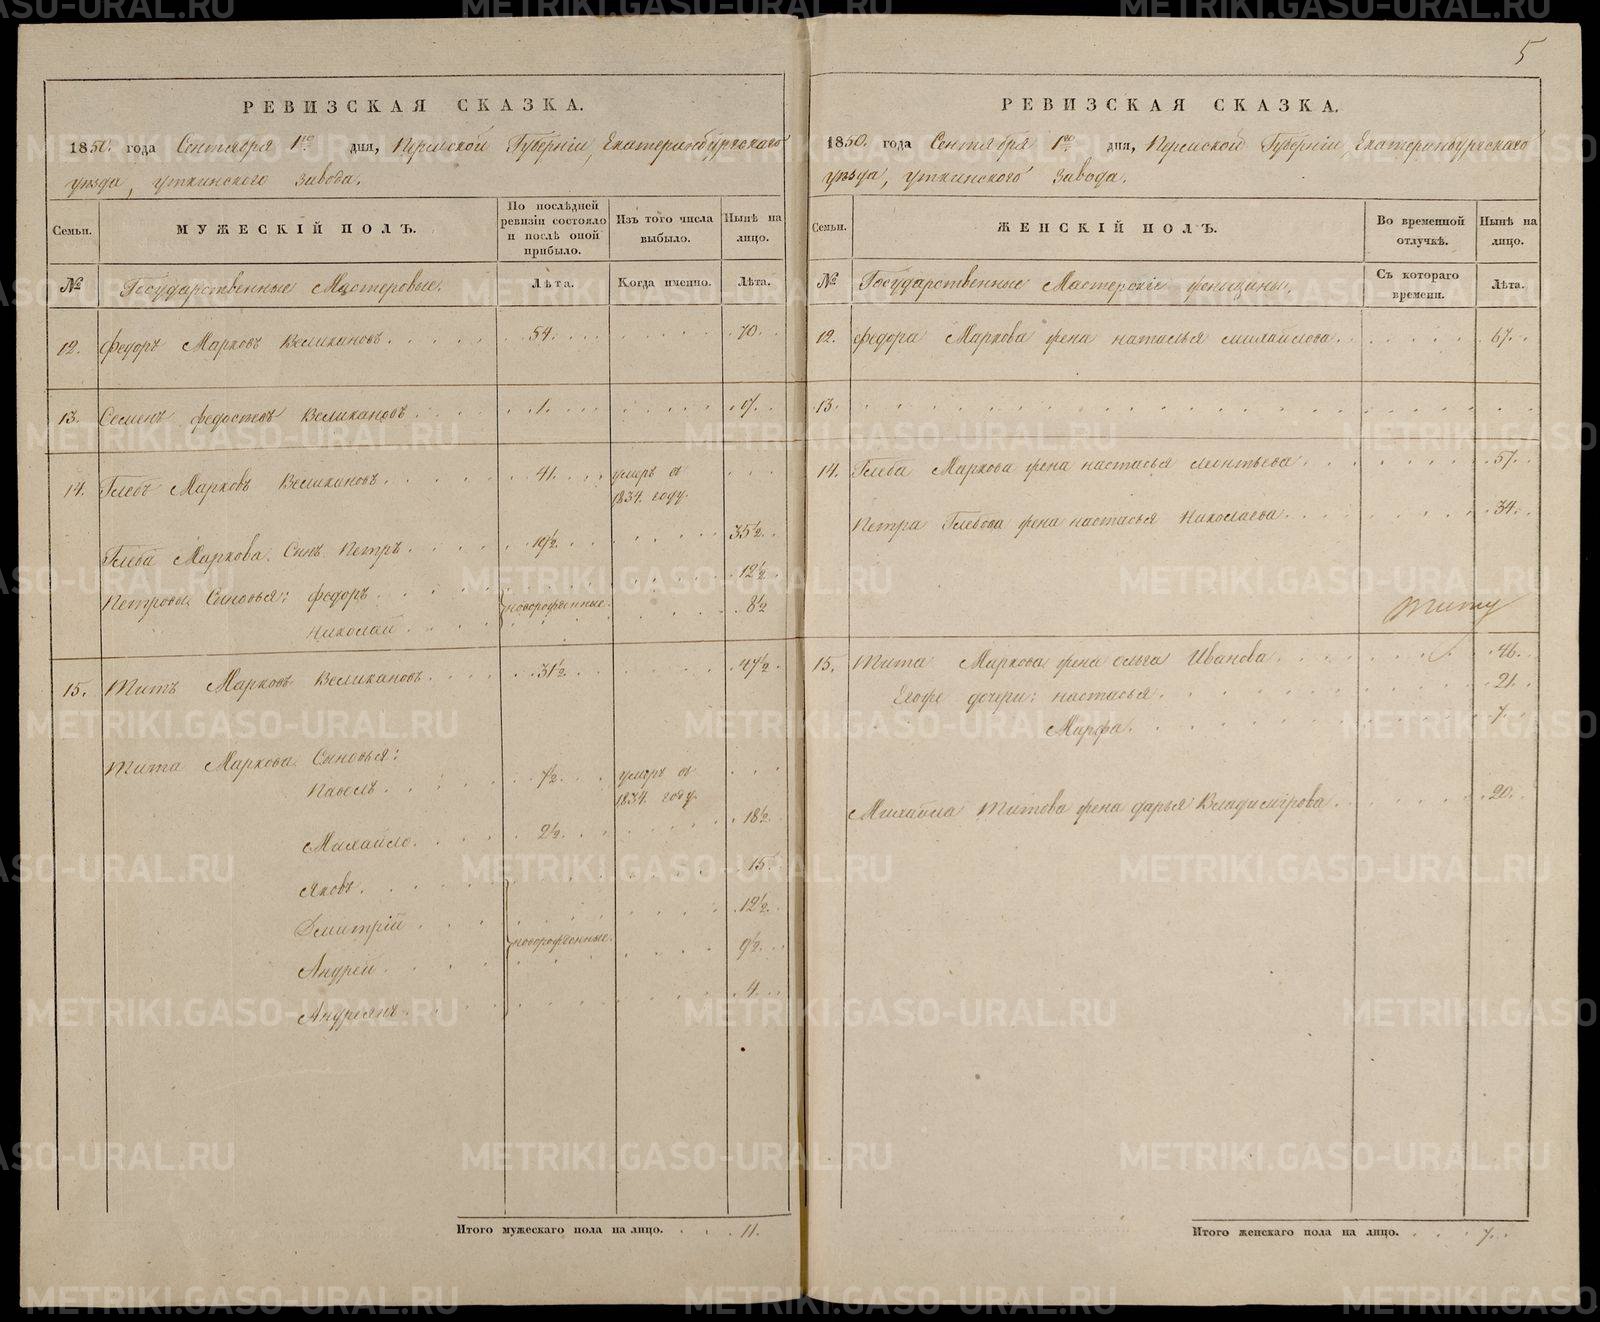 5
РЕВИЗСКАЯ СКАЗКА.
1850. года Сентября 1го дня, Пермской Губерніи, Екатеринбургскаго
уѣзда, Уткинскаго завода.
Семьи.
МУЖЕСКІЙ ПОЛЪ.
По послѣдней ревизіи состояло и послѣ оной прибыло.
Изъ того числа выбыло.
Нынѣ на лицо.
№
Государственные Мастеровые.
Лѣта.
Когда именно.
Лѣта.
12. Федоръ Марковъ Великановъ 54. 70.
13. Семенъ Великановъ 1.
14. Глебъ Марковъ Великановъ 41. умеръ въ 1834. году.
Глеба Маркова Сынъ Петръ 19½ 35½
Петровы Сыновья: Федоръ новорожденные. 12½
Николай 8½
15. Титъ Марковъ Великановъ 31½ 47½
Тита Маркова Сыновья:
Павелъ умеръ въ 1834. году.
Михайло 2½ 18½
Яковъ 15
Дмитрій 12½
новорожденные.
Андрей 9½
Андреянъ 4
Итого мужескаго пола на лицо. 11.
РЕВИЗСКАЯ СКАЗКА.
1850. года Сентября 1го дня, Пермской Губерніи, Екатеринбургскаго
уѣзда, Уткинскаго завода.
Семьи.
ЖЕНСКІЙ ПОЛЪ.
Во временной отлучкѣ.
Нынѣ на лицо.
№
Государственные Мастерскіе женщины.
Съ котораго времени.
Лѣта.
12. Федора Маркова жена Наталья Михайлова 67.
13.
14. Глеба Маркова жена Настасья Леонтьева 57.
Петра Глебова жена Настасья Николаева 34.
Титу
15. Тита Маркова жена Ольга Иванова 46.
Егоже дочери: Настасья 21.
Марфа. 7.
Михайла Титова жена Дарья Владимірова 20.
Итого женскаго пола на лицо. 7.
METRIKI.GASO-URAL.RU